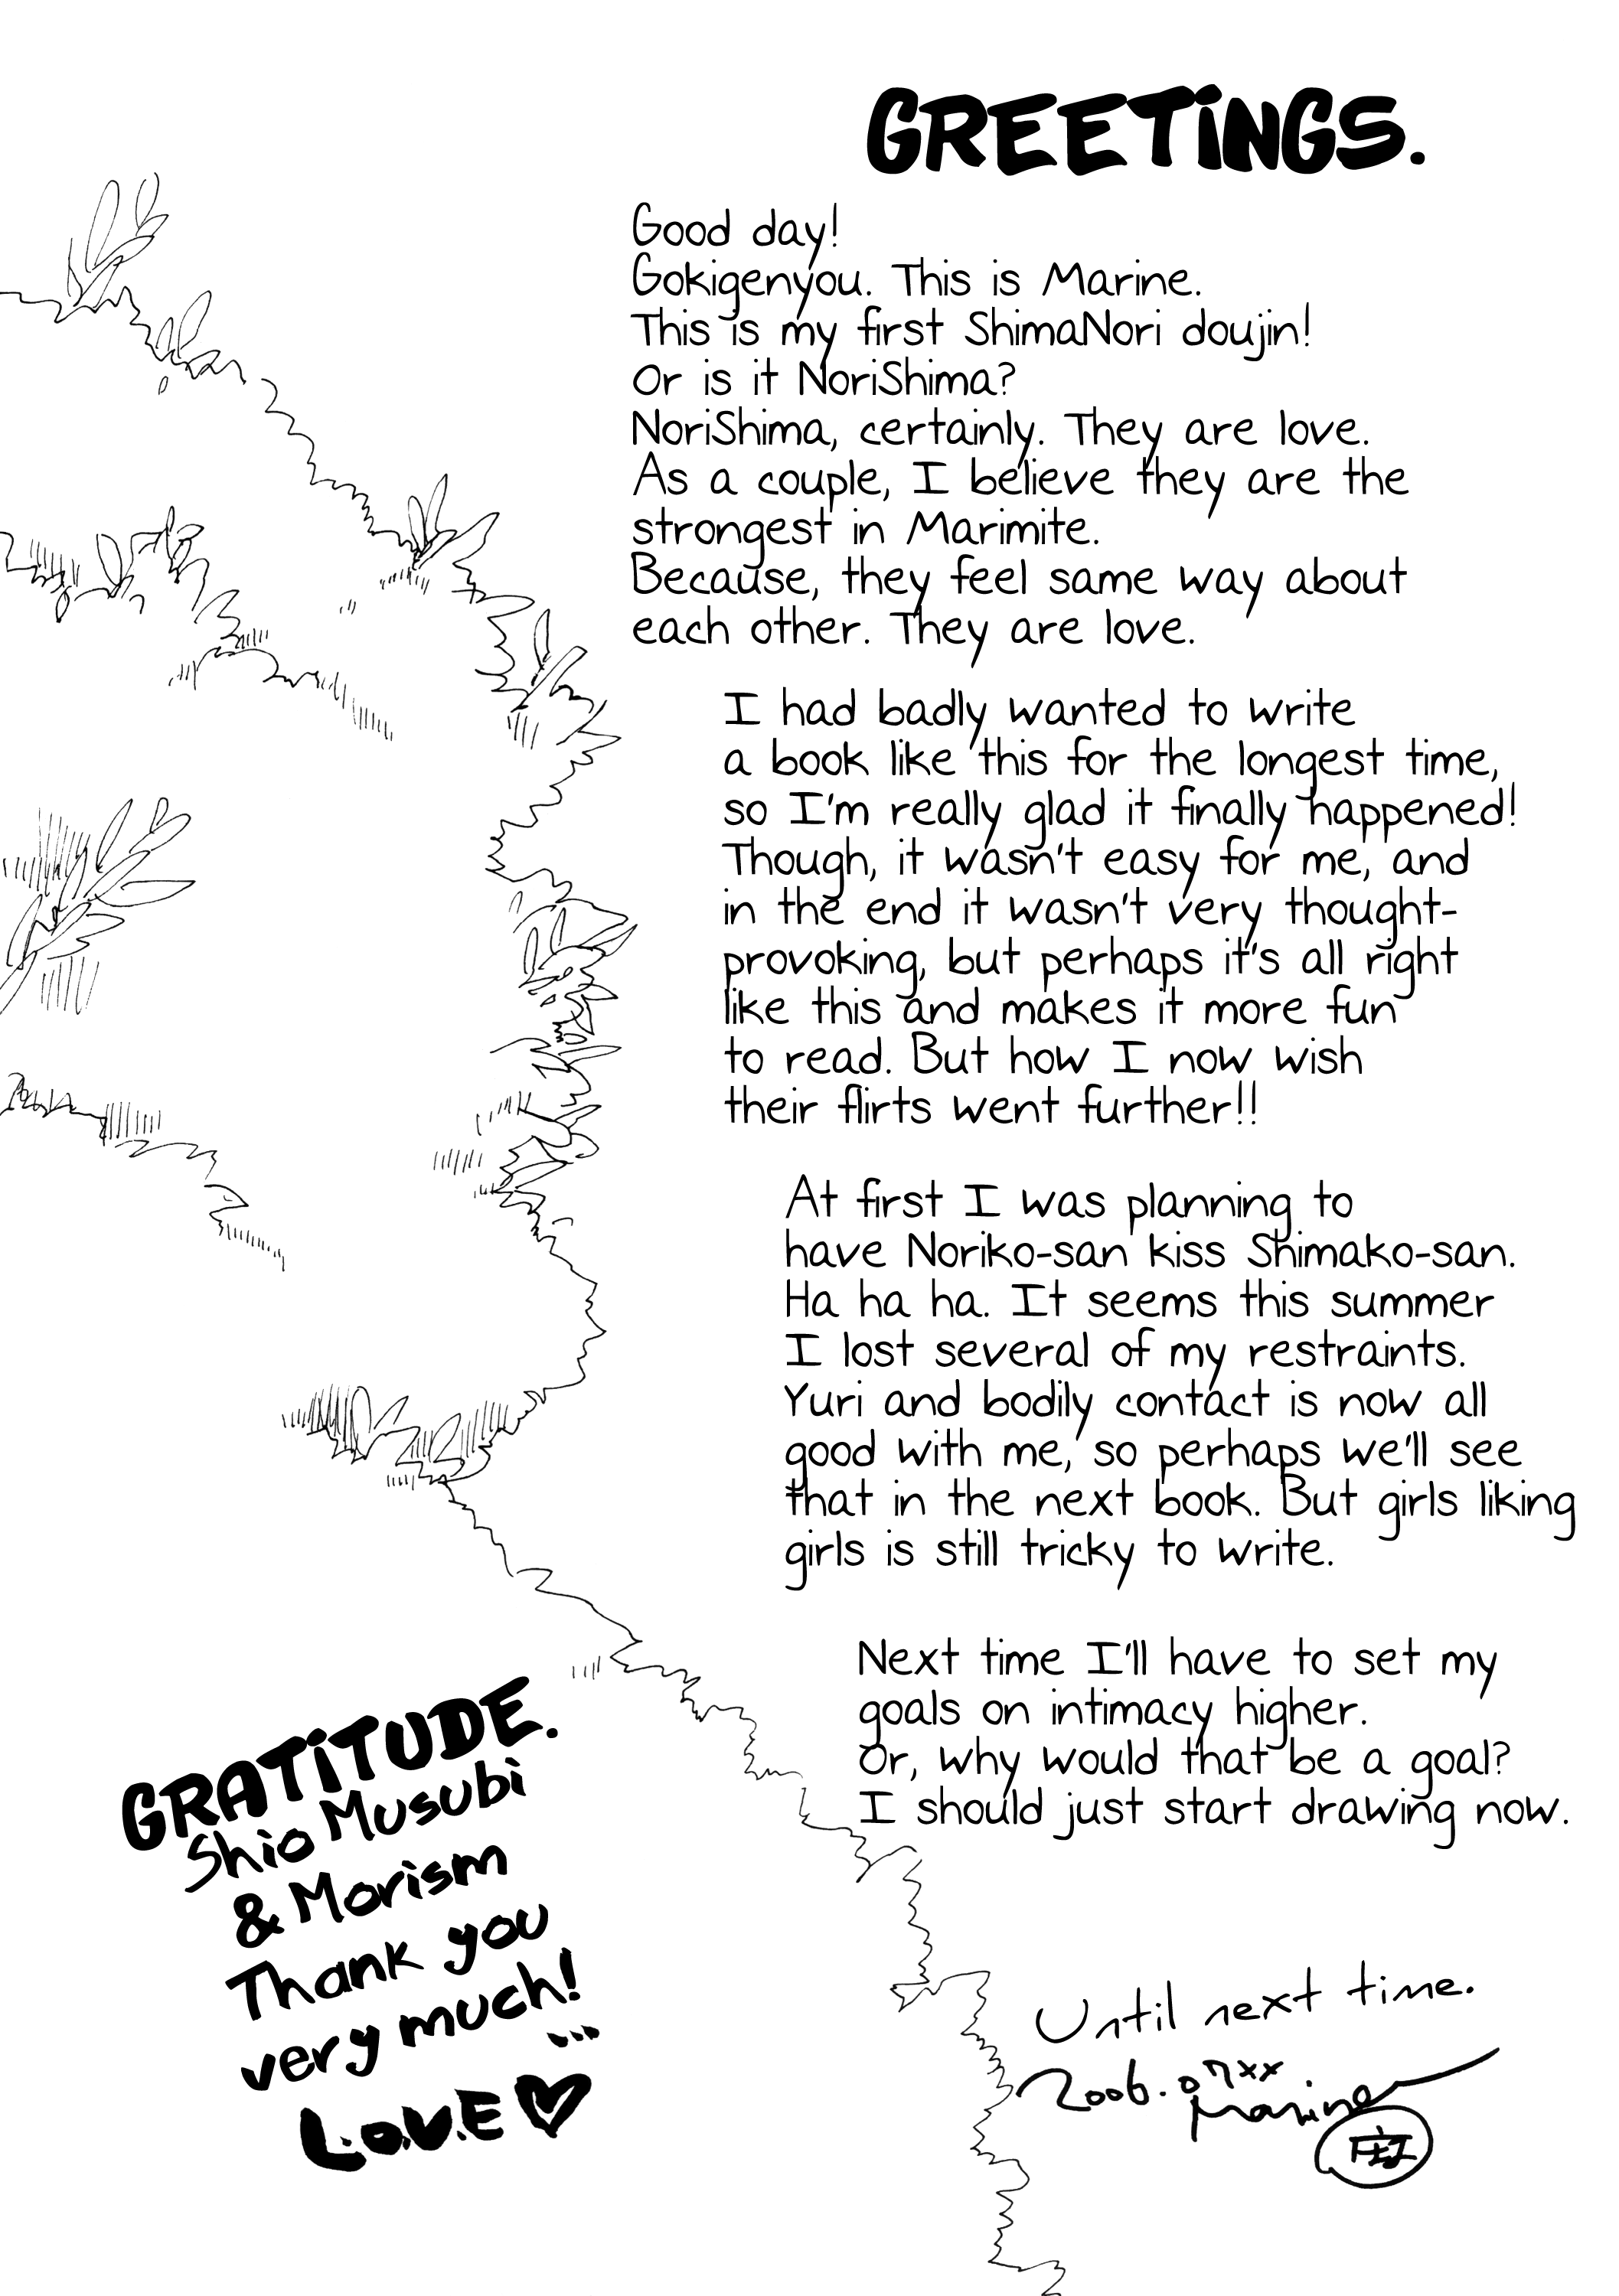 GREETINGS.
Good day!
Gokigenyou. This is Marine.
This is my first ShimaNori doujin!
Or is it NoriShima?
NoriShima, certainly. They are love.
As a couple, I believe they are the
strongest in Marimite.
Because, they feel same way about
each other. They are love.
I had badly wanted to write
a book like this for the longest time,
so I'm really glad it finally happened!
Though, it wasn't easy for me, and
in the end it wasn't very thought-
provoking, but perhaps it's all right
like this and makes it more fun
to read. But how I now wish
their flirts went further!!
At first I was planning to
have Noriko-san kiss Shimako-san.
Ha ha ha. It seems this summer
I lost several of my restraints.
Yuri and bodily contact is now all
good with me, so perhaps we'll see
that in the next book. But girls liking
girls is still tricky to write.
Next time I'll have to set my
goals on intimacy higher.
Or, why would that be a goal?
I should just start drawing now.
GRATITUDE.
Shio Musubi
& Morism
Thank you
very much!
...
L.O.V.E
Until next time.
2006.07xx
Marine